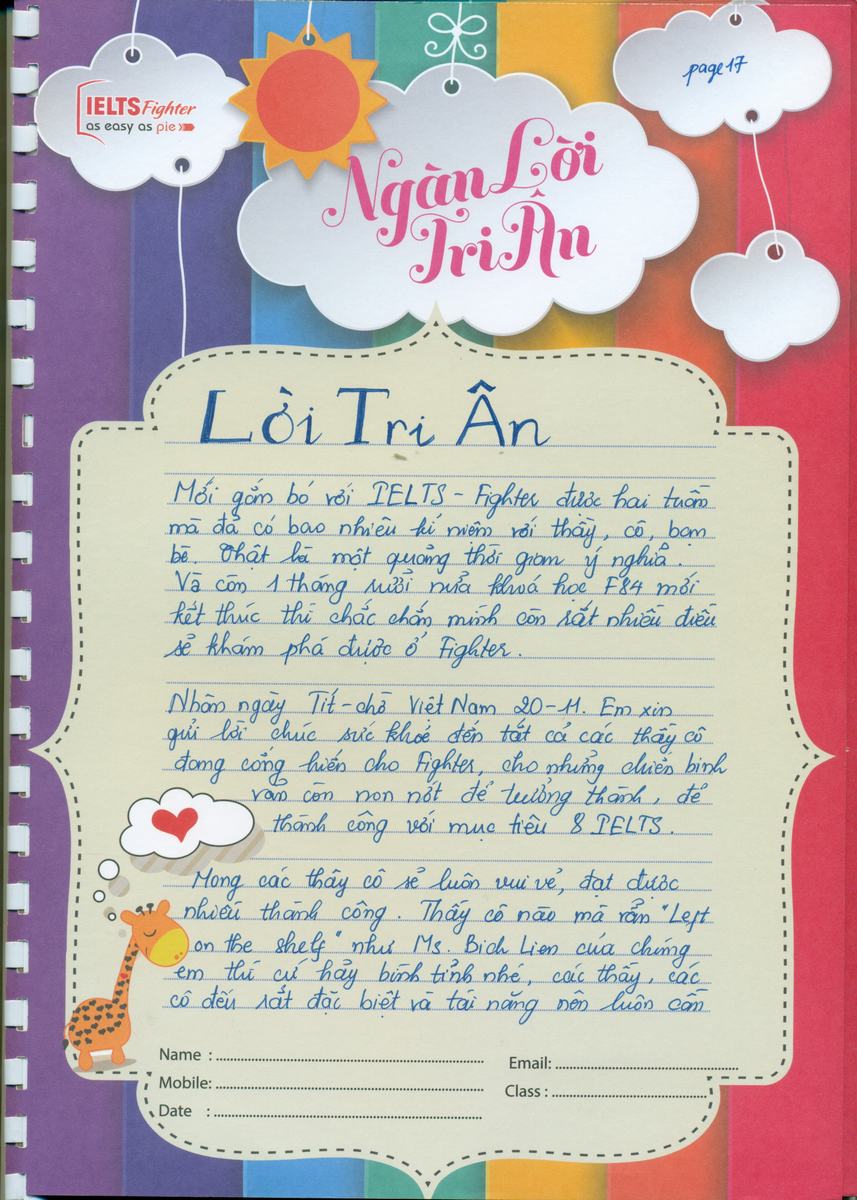 page 17
IELTS Fighter
as easy as pie
Ngàn Lời
Tri Ân
Lời Tri Ân
Mới gắn bó với IELTS - Fighter được hai tuần
mà đã có bao nhiêu kỉ niệm với thầy, cô, bạn
bè. Thật là một quãng thời gian ý nghĩa.
Và còn 1 tháng rưỡi nữa khoá học F84 mới
kết thúc thì chắc chắn mình còn rất nhiều điều
sẽ khám phá được ở Fighter.
Nhân ngày Tít-chờ Việt Nam 20-11. Em xin
gửi lời chúc sức khoẻ đến tất cả các thầy cô
đang cống hiến cho Fighter, cho những chiến binh
vẫn còn non nớt để trưởng thành, để
thành công với mục tiêu 8 IELTS.
Mong các thầy cô sẽ luôn vui vẻ, đạt được
nhiều thành công. Thầy cô nào mà vẫn "Left
on the shelf" như Ms. Bich Lien của chúng
em thì cứ hãy bình tĩnh nhé, các thầy, các
cô đều rất đặc biệt và tài năng nên luôn cần
Name :
Email:
Mobile:
Class :
Date :